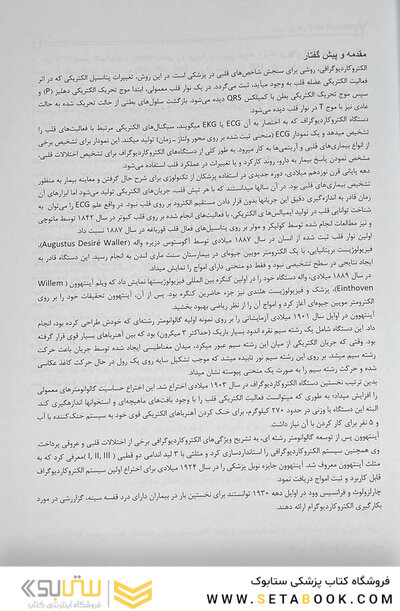 مقدمه و پیش گفتار
الکتروکاردیوگرافی، روشی برای سنجش شاخص‌های قلبی در پزشکی است. در این روش، تغییرات پتانسیل الکتریکی که در اثر
فعالیت الکتریکی عضله قلب به وجود میآید، ثبت می‌گردد. در یک نوار قلب معمولی، ابتدا موج تحریک الکتریکی دهلیز (P) و
سپس موج تحریک الکتریکی بطن با کمپلکس QRS دیده می‌شود. بازگشت سلول‌های بطنی از حالت تحریک شده به حالت
عادی نیز با موج T در نوار قلب دیده می‌شود.
دستگاه الکتروکاردیوگراف که به اختصار به آن ECG یا EKG میگویند، سیگنال‌های الکتریکی مرتبط با فعالیت‌های قلب را
تشخیص میدهد و یک نمودار ECG (منحنی ثبت شده بر روی محور ولتاژ – زمان) تولید میکند. این نمودار برای تشخیص برخی
از انواع بیماری‌های قلبی و آریتمی‌ها به کار میرود به طور کلی از دستگاه‌های الکتروکاردیوگراف برای تشخیص اختلالات قلبی،
مشخص نمودن پاسخ بیمار به دارو، روند کارکرد و یا تغییرات در عملکرد قلب استفاده می‌شود.
دهه پایانی قرن نوزدهم میلادی، دوره جدیدی در استفاده پزشکان از تکنولوژی برای شرح حال گرفتن و معاینه بیمار به منظور
تشخیص بیماری‌های قلبی بود. در آن سالها میدانستند که با هر تپش قلب، جریان‌های الکتریکی تولید می‌شود اما ابزارهای آن
زمان قادر به اندازه‌گیری دقیق این جریانها بدون قرار دادن مستقیم الکترود بر روی قلب نبود. در واقع علم ECG را می‌توان به
شناخت توانایی قلب در تولید ایمپالس‌های الکتریکی، با فعالیت‌های انجام شده بر روی قلب کبوتر در سال ۱۸۴۲ توسط ماتوچی
و نیز مطالعات انجام شده توسط کولیکر و مولر بر روی پتانسیل‌های فعال قلب قورباغه در سال ۱۸۸۷ نسبت داد.
اولین نوار قلب ثبت شده از انسان در سال ۱۸۸۷ میلادی توسط آگوستوس دزیره واله (Augustus Desiré Waller)،
فیزیولوژیست بریتانیایی، با یک الکترومتر مویین جیوه‌ای در بیمارستان سنت ماری لندن به انجام رسید. این دستگاه قادر به
ایجاد نتایجی در سطح تشخیصی نبود و فقط دو منحنی دارای امواج را نمایش میداد.
در سال ۱۸۸۹ میلادی، واله دستگاه خود را در اولین کنگره بین المللی فیزیولوژیستها نمایش داد که ویلم آینتهوون (Willem
Einthoven)، پزشک و فیزیولوژیست هلندی نیز جزء حاضرین کنگره بود. پس از آن، آینتهوون تحقیقات خود را بر روی
الکترومتر مویین جیوه‌ای آغاز کرد و امواج آن را از نظر ریاضی بهبود بخشید.
آینتهوون در اوایل سال ۱۹۰۱ میلادی آزمایشاتی را بر روی نمونه اولیه گالوانومتر رشته‌ای که خودش طراحی کرده بود، انجام
داد. این دستگاه شامل یک رشته سیم نقره اندود بسیار باریک (حداکثر ۳ میکرون) بود که بین آهنرباهای بسیار قوی قرار گرفته
بود. وقتی که جریان الکتریکی از میان این رشته سیم عبور میکرد، میدان مغناطیسی ایجاد شده توسط جریان باعث حرکت
رشته سیم میشد. بر روی این رشته سیم نور تابیده میشد که موجب تشکیل سایه روی یک رول در حال حرکت کاغذ عکاسی
شده و حرکت رشته سیم را به صورت یک منحنی پیوسته نشان میداد.
بدین ترتیب نخستین دستگاه الکتروکاردیوگراف در سال ۱۹۰۳ میلادی اختراع شد. این اختراع حساسیت گالوانومترهای معمولی
را افزایش میداد؛ به طوری که میتوانست فعالیت الکتریکی قلب را با وجود بافت‌های ماهیچه‌ای و استخوانها اندازهگیری کند.
البته این دستگاه با وزنی در حدود ۲۷۰ کیلوگرم، برای خنک کردن آهنرباهای الکتریکی قوی خود به سیستم خنک‌کننده با آب
و ۵ نفر برای کار کردن با آن نیاز داشت.
آینتهوون پس از توسعه گالوانومتر رشته ای، به تشریح ویژگی‌های الکتروکاردیوگرافی برخی از اختلالات قلبی و عروقی پرداخت.
وی همچنین سیستم الکتروکاردیوگرافی را استانداردسازی کرد و مثلثی با ۳ لید اندامی دو قطبی ( I, II, III ) معرفی کرد که به
مثلث آینتهوون معروف شد. آینتهوون جایزه نوبل پزشکی را در سال ۱۹۲۴ میلادی برای اختراع اولین سیستم الکتروکاردیوگراف
قابل کاربرد و ثبت امواج دریافت نمود.
چارلزولوت و فرانسیس وود در اوایل دهه ۱۹۳۰ توانستند برای نخستین بار در بیماران دارای درد قفسه سینه، گزارشی در مورد
بکارگیری الکتروکاردیوگرام ارائه دهند.
فروشگاه کتاب پزشکی ستابوک
WWW.SETABOOK.COM
ستابوک
فروشگاه اینترنتی کتاب